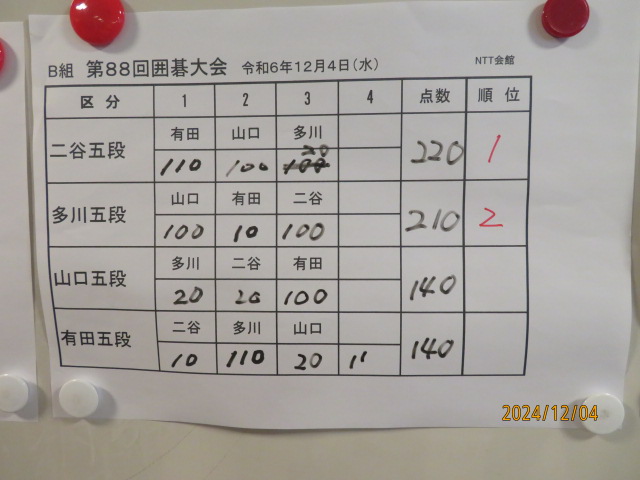 B組 第88回囲碁大会 令和6年12月4日(水) NTT会館
区 分 1 2 3 4 点数 順 位
二谷五段 有田 山口 多川
110 100 20 220 1
多川五段 山口 有田 二谷
100 10 100 210 2
山口五段 多川 二谷 有田
20 20 100 140
有田五段 二谷 多川 山口
10 110 20 140
2024/12/04